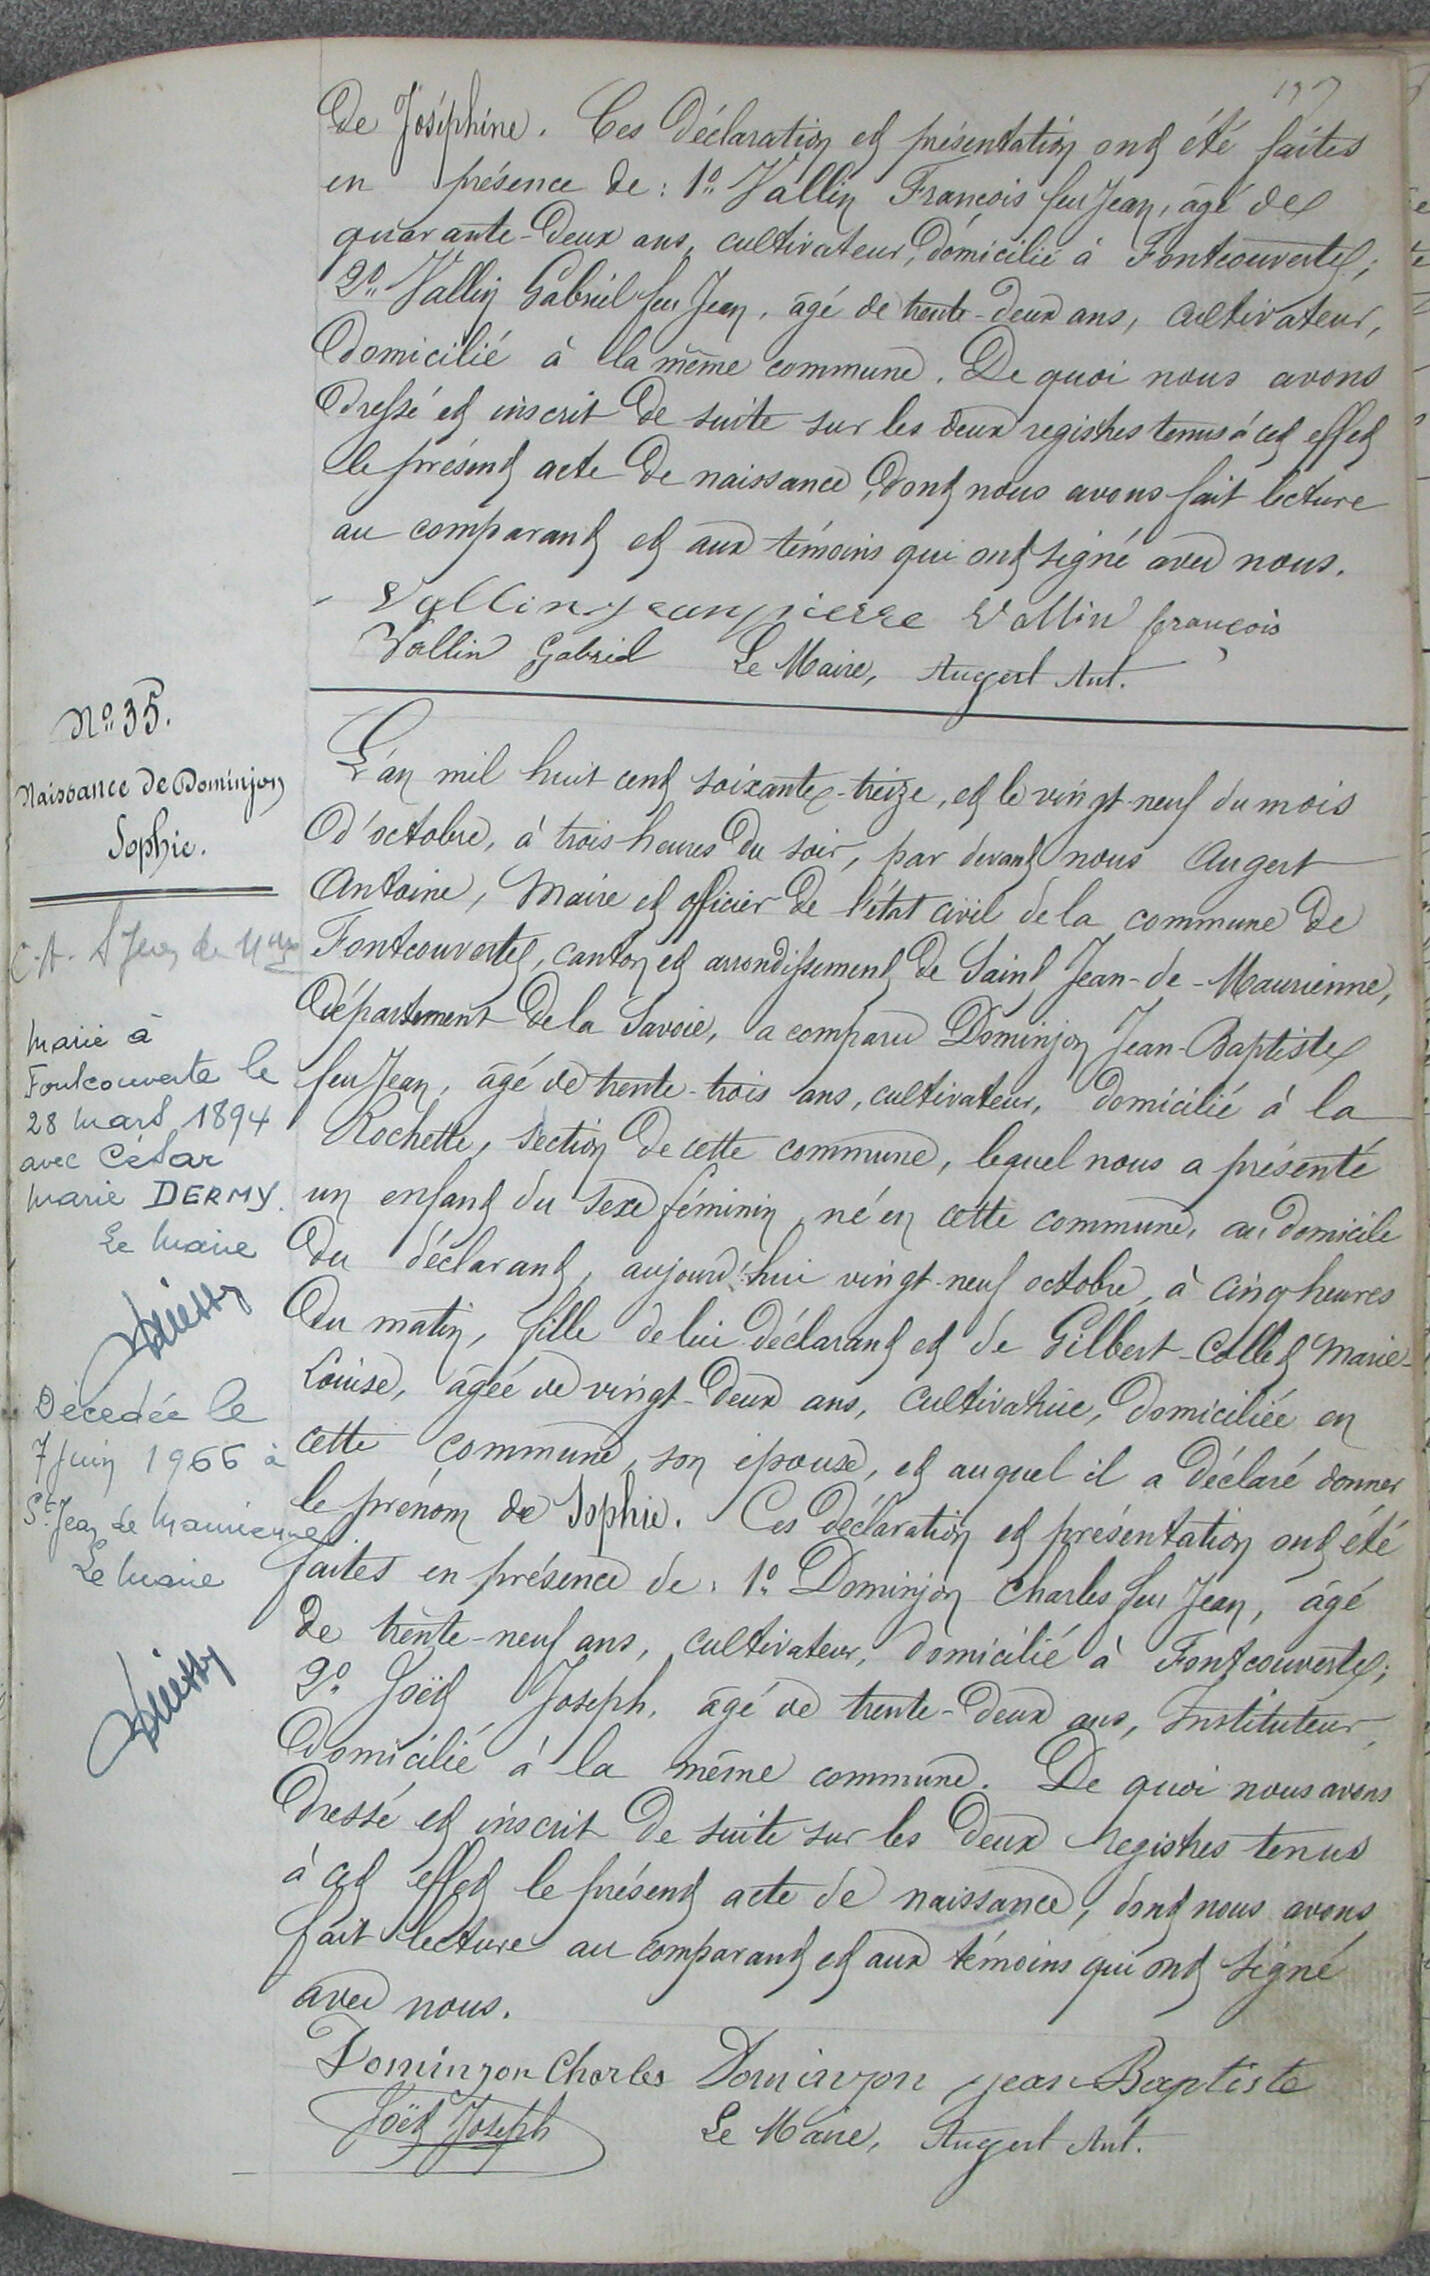 de Joséphine. Ces déclaration et présentation ont été faites
en présence de : 1º Vallin François feu Jean, âgé de
quarante-deux ans, cultivateur, domicilié à Fontcouverte;
2º Vallin Gabriel feu Jean, âgé de trente-deux ans, cultivateur,
domicilié à la même commune. De quoi nous avons
dressé et inscrit de suite sur les deux registres tenus à cet effet
le présent acte de naissance, dont nous avons fait lecture
au comparant et aux témoins qui ont signé avec nous.
Vallin jean pierre Vallin françois
Vallin Gabriel Le Maire, Augert Ant.
Nº 35.
Naissance de Dominjon
Sophie.
Marié à
Fontcouverte le
28 mars 1894
avec César
Marie DERMY.
Le Maire
Décédée le
7 juin 1966 à
St. Jean de Maurienne
Le Maire
L'an mil huit cent soixante-treize, et le vingt-neuf du mois
d'octobre, à trois heures du soir, par devant nous Augert
Antoine, Maire et officier de l'état civil de la commune de
Fontcouverte, canton et arrondissement de Saint Jean-de-Maurienne,
département de la Savoie, a comparu Dominjon Jean-Baptiste
feu Jean, âgé de trente-trois ans, cultivateur, domicilié à la
Rochette, section de cette commune, lequel nous a présenté
un enfant du sexe féminin, né en cette commune, au domicile
du déclarant, aujourd'hui vingt-neuf octobre, à cinq heures
du matin, fille de lui déclarant et de Gilbert-Collet Marie-
Louise, âgée de vingt-deux ans, cultivatrice, domiciliée en
cette commune, son épouse, et auquel il a déclaré donner
le prénom de Sophie. Ces déclaration et présentation ont été
faites en présence de : 1º Dominjon Charles feu Jean, âgé
de trente-neuf ans, cultivateur, domicilié à Fontcouverte;
2º Joët Joseph, âgé de trente-deux ans, Instituteur,
domicilié à la même commune. De quoi nous avons
dressé et inscrit de suite sur les deux registres tenus
à cet effet le présent acte de naissance, dont nous avons
fait lecture au comparant et aux témoins qui ont signé
avec nous.
Dominjon Charles Dominjon jean Baptiste
Joët Joseph Le Maire, Augert Ant.